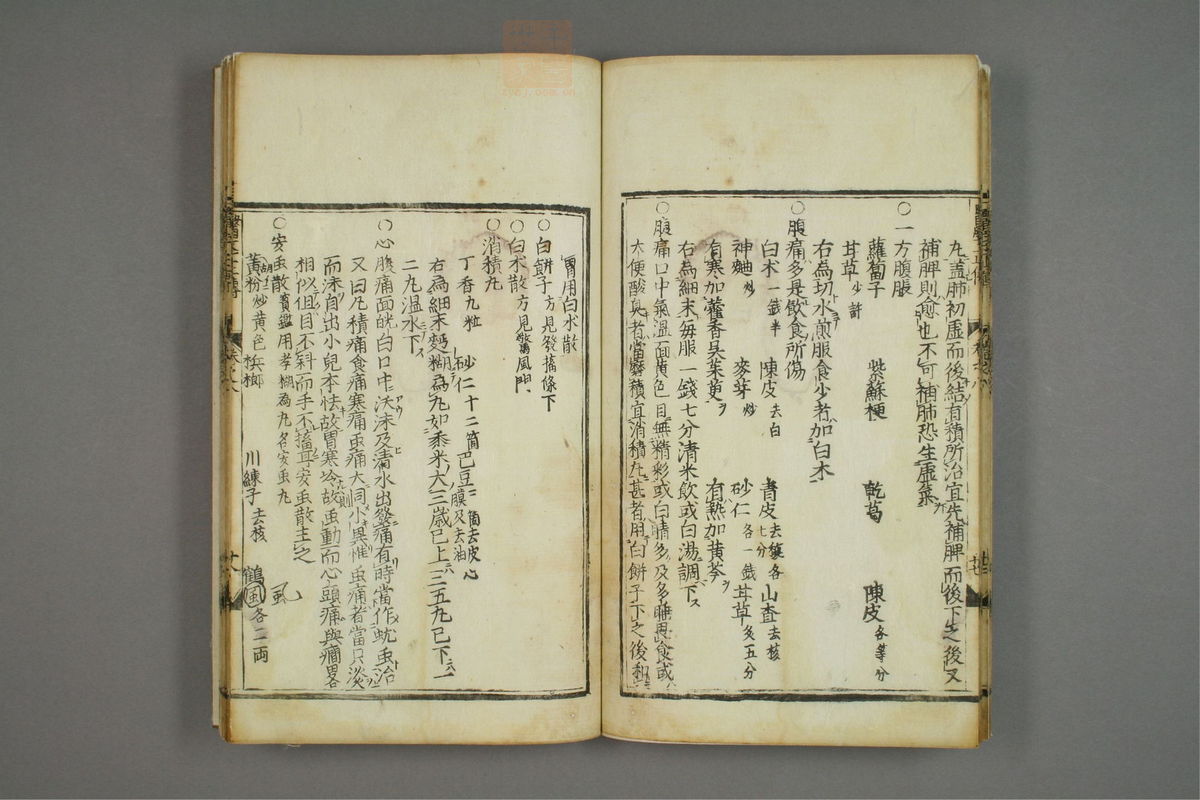 丸盖肺初虚而後結有積所治宜先補脾而後下之後又
補脾則愈也不可補肺恐生虚氣
○一方腹脹
蘿蔔子 紫蘇梗 乾葛 陳皮各等分
甘草少許
右為㕮水煎服食少者加白朮
○腹痛多是飲食所傷
白朮一錢半 陳皮去白 青皮去穣七分 山査去核
神麯炒 麥芽炒 砂仁各一錢 甘草炙五分
有寒加藿香吳茱萸 有熱加黄芩
右為細末每服一錢七分清米飲或白湯調下
○腹痛口中氣溫面黄色目無精彩或白睛多及多睡畏食或
大便酸臭者當磨積宜消積丸甚者用白餅子下之後和
胃用白朮散
○白餅子方見發搐條下
○白朮散方見驚風門
○消積丸
丁香九粒 砂仁十二箇 巴豆二箇去皮心膜及去油
右為細末麪糊為丸如黍米大三歲已上三五丸已下
二丸溫水下
○心腹痛面㿠白口中沃沫及清水出發痛有時當作蚘虫治
又曰凡積痛食痛寒痛虫痛大同小異惟虫痛者當口淡
而沫自出小兒本怯故胃寒冷故虫動而心頭痛與癎畧
相似但目不斜而手不搐耳安虫散主之
○安虫散寳鑑用孝糊為丸名安虫丸
黄粉炒黄色 檳榔 川練子去核 鶴虱各二両